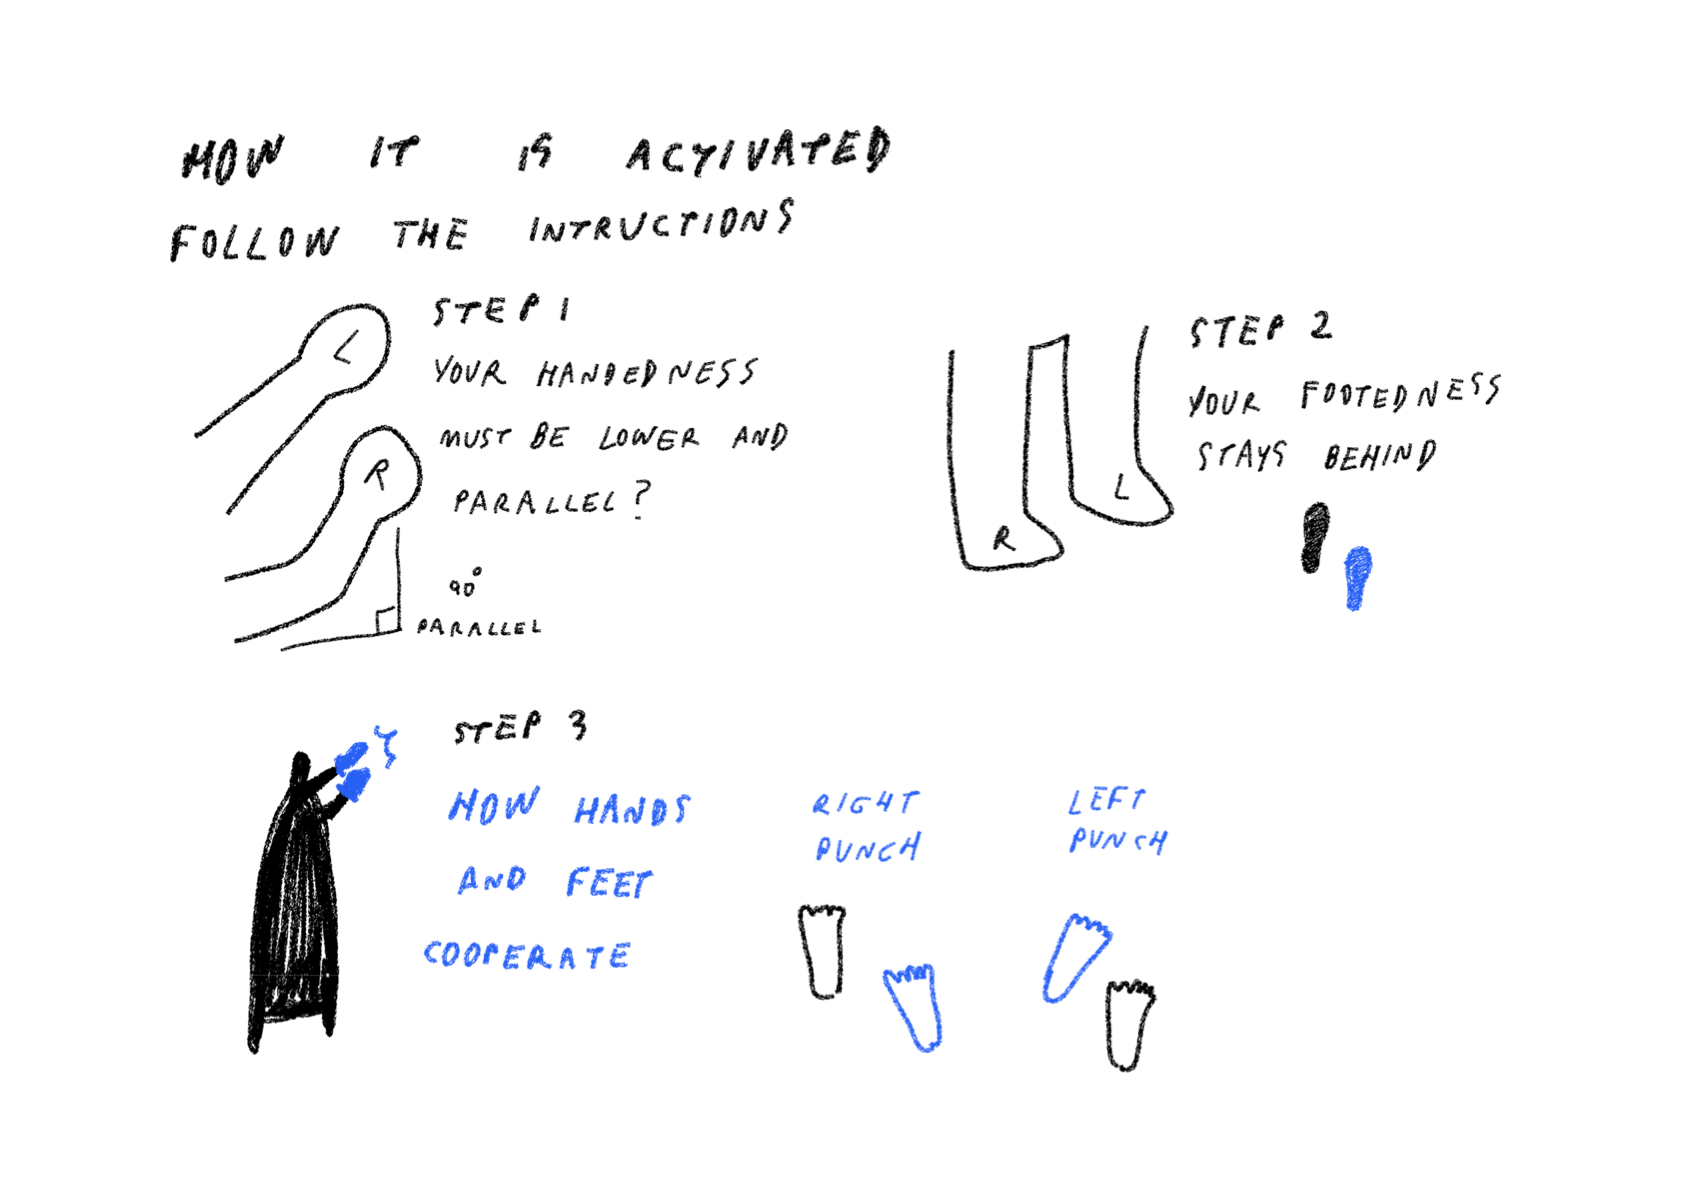 HOW IT IS ACTIVATED
FOLLOW THE INTRUCTIONS
L
R
STEP 1
YOUR HANDEDNESS
MUST BE LOWER AND
PARALLEL?
90°
PARALLEL
R
L
STEP 2
YOUR FOOTEDNESS
STAYS BEHIND
STEP 3
HOW HANDS
AND FEET
COOPERATE
RIGHT
PUNCH
LEFT
PUNCH